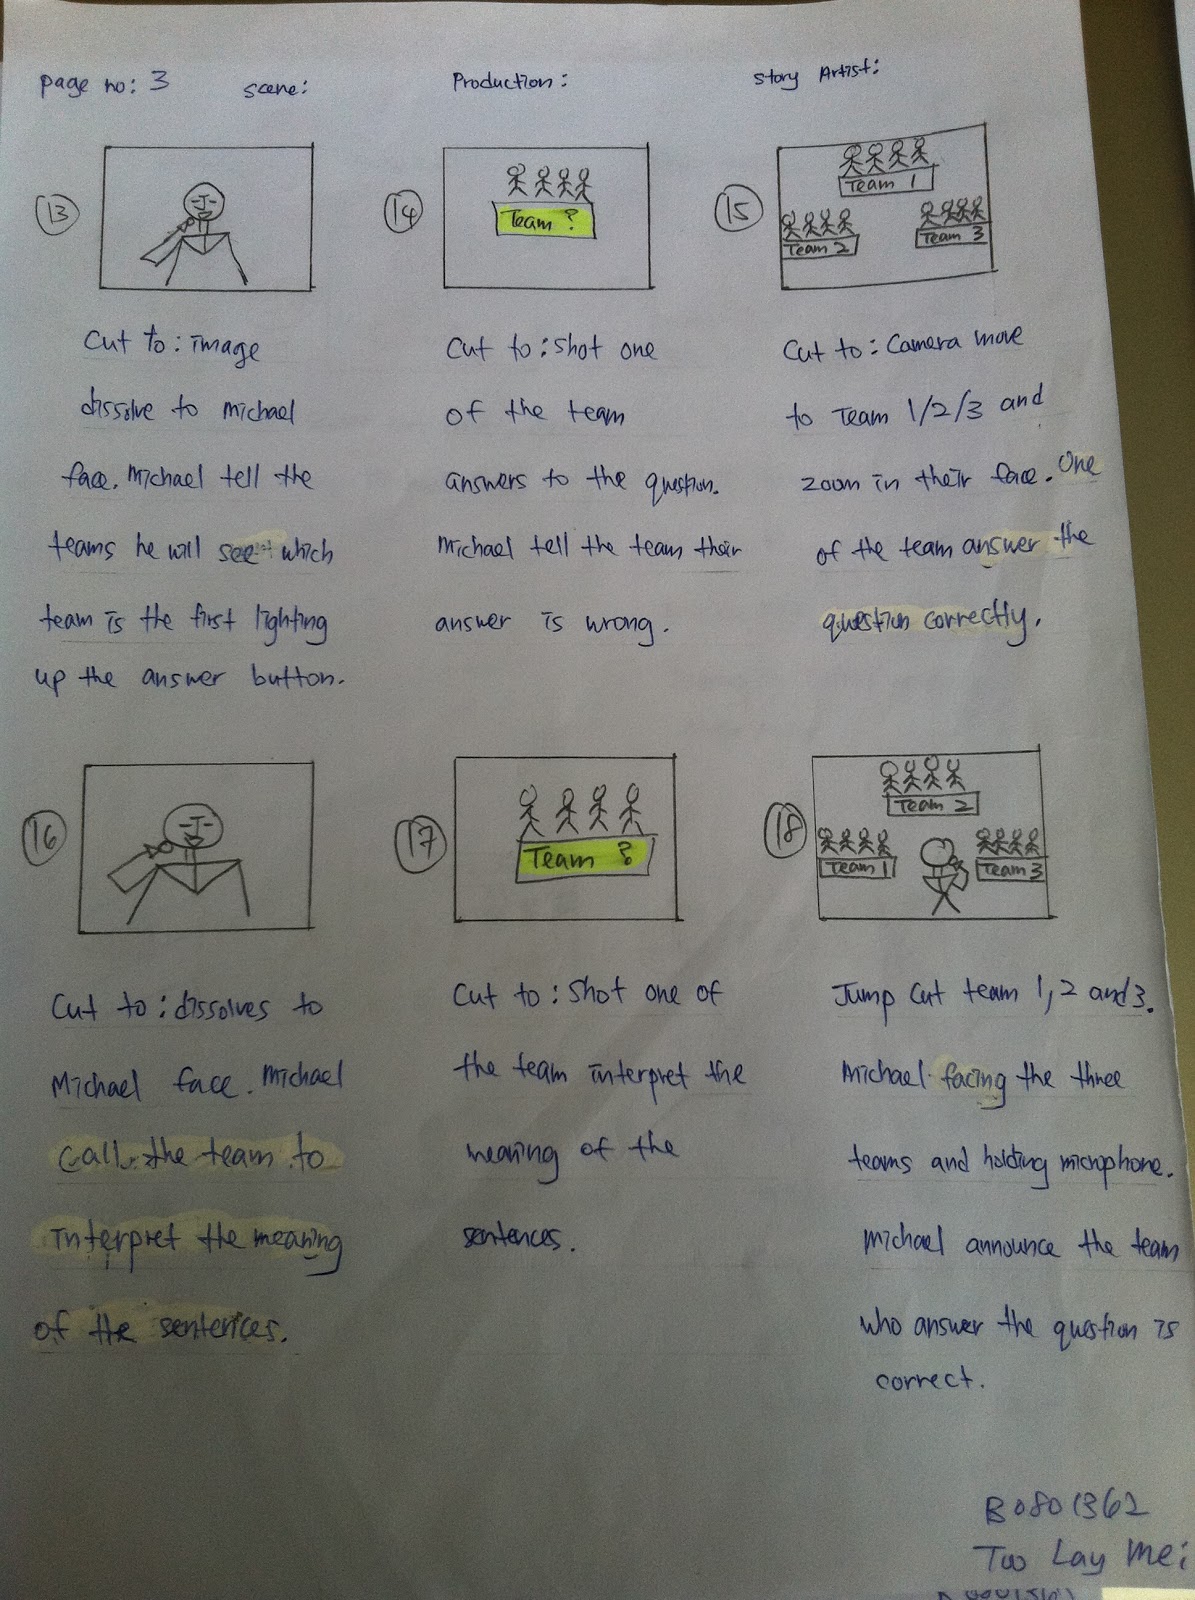 Page no: 3 scene: Production: Story Artist:
13
14
Team ?
15
Team 1
Team 2 Team 3
Cut to: image
dissolve to michael
face. Michael tell the
teams he will see which
team is the first lighting
up the answer button.
Cut to: Shot one
of the team
answers to the question.
Michael tell the team their
answer is wrong.
Cut to: Camera move
to Team 1/2/3 and
zoom in their face. One
of the team answer the
question correctly.
16
17
Team ?
18
Team 2
Team 1 Team 3
Cut to: dissolves to
Michael face. Michael
call the team to
interpret the meaning
of the sentences.
Cut to: Shot one of
the team interpret the
meaning of the
sentences.
Jump Cut team 1, 2 and 3.
Michael facing the three
teams and holding microphone.
Michael announce the team
who answer the question is
correct.
B0801362
Too Lay Mei